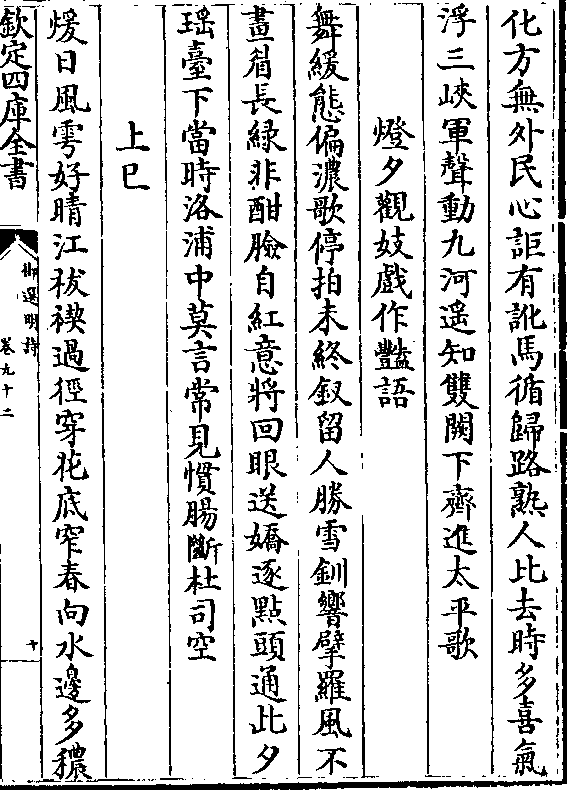 化方無外民心詎有訛馬循歸路熟人比去時多喜氣
浮三峽軍聲動九河遥知雙闕下齊進太平歌
燈夕觀妓戲作豔語
舞緩態偏濃歌停拍未終釵留人勝雪釧響擘羅風不
畫眉長緑非酣臉自紅意將回眼送嬌逐點頭通此夕
瑶臺下當時洛浦中莫言常見慣腸斷杜司空
上巳
煖日風雩好晴江祓禊過徑穿花底窄春向水邊多穠
欽定四庫全書
御選明詩
卷九十二
十